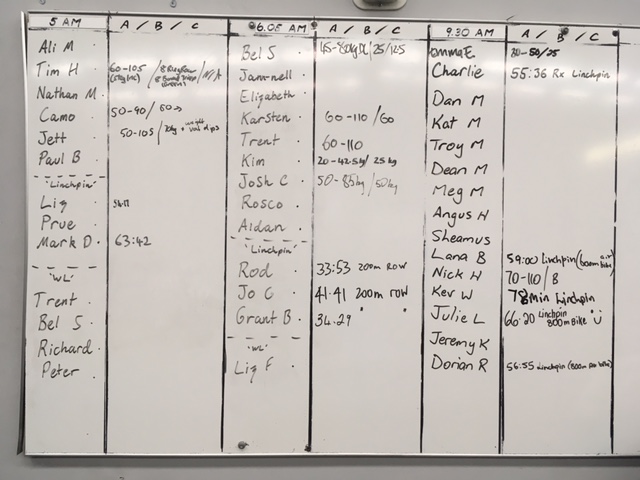 5 AM A / B / C
Ali M
Tim H 60-105
Nathan M
Camo 50-90 / 60
Jett 50-105 /
Paul B
"Linchpin"
Liz
Prue
Mark D. 63:42
"WL"
Trent
Bel S
Richard
Peter
6.05 AM A / B / C
Bel S 45-80kg DL / 25 / 12.5
Jannell
Elizabeth
Karsten 60-110 / 60
Trent 60-110
Kim 20-42.5kg / 25kg
Josh C 50-85kg / 50kg
Rosco
Aidan
"Linchpin"
Rod 33:53 200m ROW
Jo C 41.41 200m row
Grant B 34.29 " "
"WL"
Liz F
9.30 AM A / B / C
Emma E 30-50/25
Charlie 55:36 Rx Linchpin
Dan M
Kat M
Troy M
Dean M
Meg M
Angus H
Sheamus
Lana B 59:00 Linchpin
Nick H 70-110 / B
Kev W 78min Linchpin
Julie L 66.20 Linchpin 800m Bike
Jeremy K
Dorian R 56:55 Linchpin (800m